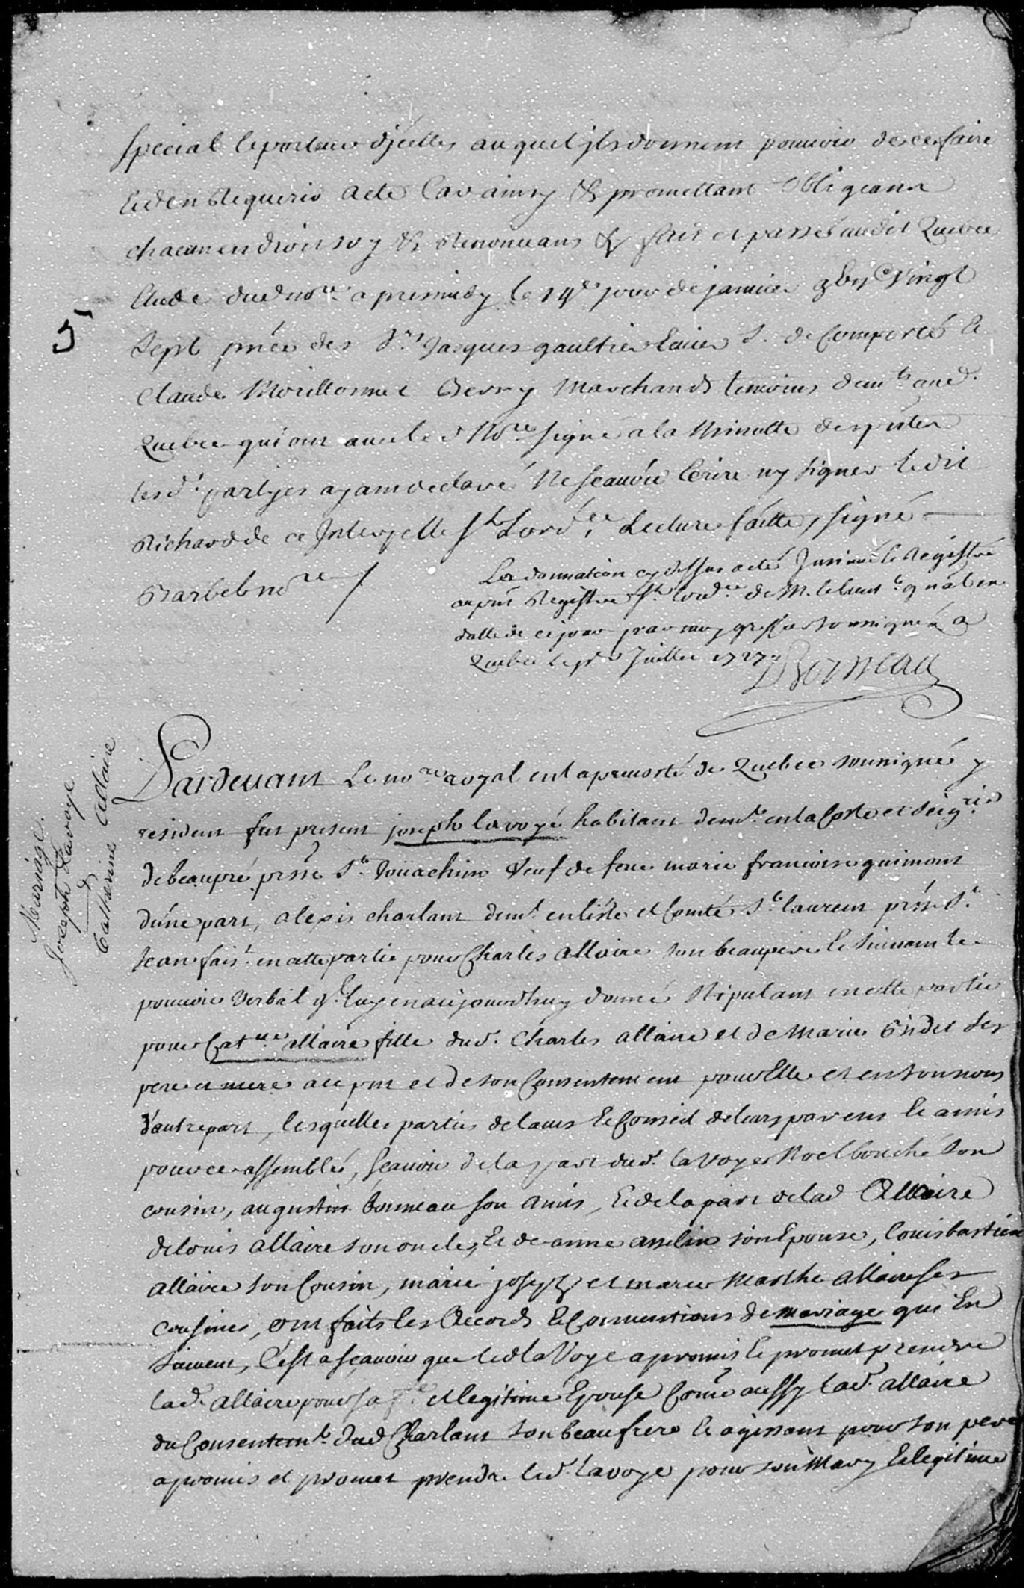 special le porteur d'jcelles auquel jls donnent pouvoir de ce faire
Et d'en Requerir acte Car ainsy &c promettant obligeant
chacun en droit soy &c Renonceans &c fait et passé audit Quebec
Etude dud no.re apresmidy le 14.e jour de janvier vingt
Sept pñce des S.rs Jacques gaultier Ecuier S. de Comporté Et
Claude Morillonnet Berry Marchands temoins dem.ts aud.
Quebec qui ont avec led No.re signé a la Minutte des p̃ntes
lesd. partyes ayant declaré Ne scavoir Ecrire ny signer led
Richard de ce Interpellé S.t Lord.ce Lecture faitte, signé
Barbel no.re /
La donnation cy dessus a esté Jnsinuée Et Régistrée
au pnt Registre S.t Lord.ce de M. le Lieut.
datte de ce jour par moy greffier soussigné a
Quebec le Juillet 1727
Boisseau
5
Mariage.
Joseph Lavoye
&
Catherine Allaire
Pardevant Le no.re royal en la prevosté de Quebec soussigné y
resident fut present joseph lavoyé habitant dem.t en la Coste et Seig.rie
de beaupré p̃sse S.t Jouachim Veuf de feue marie francoise guimont
d'une part, alexis charlant dem.t en l'isle et Comté S.t laurent p̃sse S.t
Jean fais.t en cette partie pour Charles allaire son beaupere Et suivant le
pouvoir verbal q.l luy en a aujourdhuy donné Stipulant en cette partie
pour Cat.ne allaire fille dud. Charles allaire et de Marie Bidet ses
pere et mere a ce pnt et de son Consentement pour Elle et en son nom
d'autre part, lesquelles parties de l'avis Et Conseil de leurs parens Et amis
pour ce assemblés, scavoir de la part dud. lavoye Noel bouché son
cousin, augustin bonneau son amis, Et de la part de lad Allaire
de louis allaire son oncle, Et de anne asselin son Epouse, Louis bastien
allaire son Cousin, marie joseph et marie Marthe allaire ses
cousines, ont faits les Accords Et Conventions de mariage qui En
suivent, C'est a sçavoir que led la Voye a promis Et promet prendre
lad. allaire pour sa f.e et legitime Epouse Com̃e aussy lad. allaire
du Consentem.t dud Charlant son beaufrere Et agissant pour son pere
a promis et promet prendre led. lavoye pour son Mary Et legitime